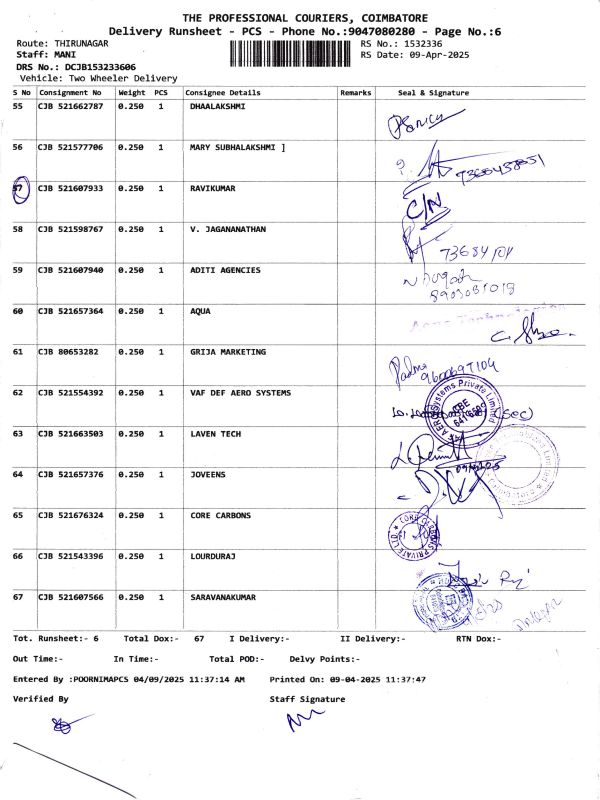 THE PROFESSIONAL COURIERS, COIMBATORE
Delivery Runsheet - PCS - Phone No.:9047080280 - Page No.:6
Route: THIRUNAGAR RS No.: 1532336
Staff: MANI RS Date: 09-Apr-2025
DRS No.: DCJB153233606
Vehicle: Two Wheeler Delivery
S No Consignment No Weight PCS Consignee Details Remarks Seal & Signature
55 CJB 521662787 0.250 1 DHAALAKSHMI
56 CJB 521577706 0.250 1 MARY SUBHALAKSHMI ]
57 CJB 521607933 0.250 1 RAVIKUMAR C/N
58 CJB 521598767 0.250 1 V. JAGANANATHAN
59 CJB 521607940 0.250 1 ADITI AGENCIES
60 CJB 521657364 0.250 1 AQUA
61 CJB 80653282 0.250 1 GRIJA MARKETING
62 CJB 521554392 0.250 1 VAF DEF AERO SYSTEMS (SEC)
63 CJB 521663503 0.250 1 LAVEN TECH
64 CJB 521657376 0.250 1 JOVEENS
65 CJB 521676324 0.250 1 CORE CARBONS
66 CJB 521543396 0.250 1 LOURDURAJ
67 CJB 521607566 0.250 1 SARAVANAKUMAR
Tot. Runsheet:- 6 Total Dox:- 67 I Delivery:- II Delivery:- RTN Dox:-
Out Time:- In Time:- Total POD:- Delvy Points:-
Entered By :POORNIMAPCS 04/09/2025 11:37:14 AM Printed On: 09-04-2025 11:37:47
Verified By Staff Signature